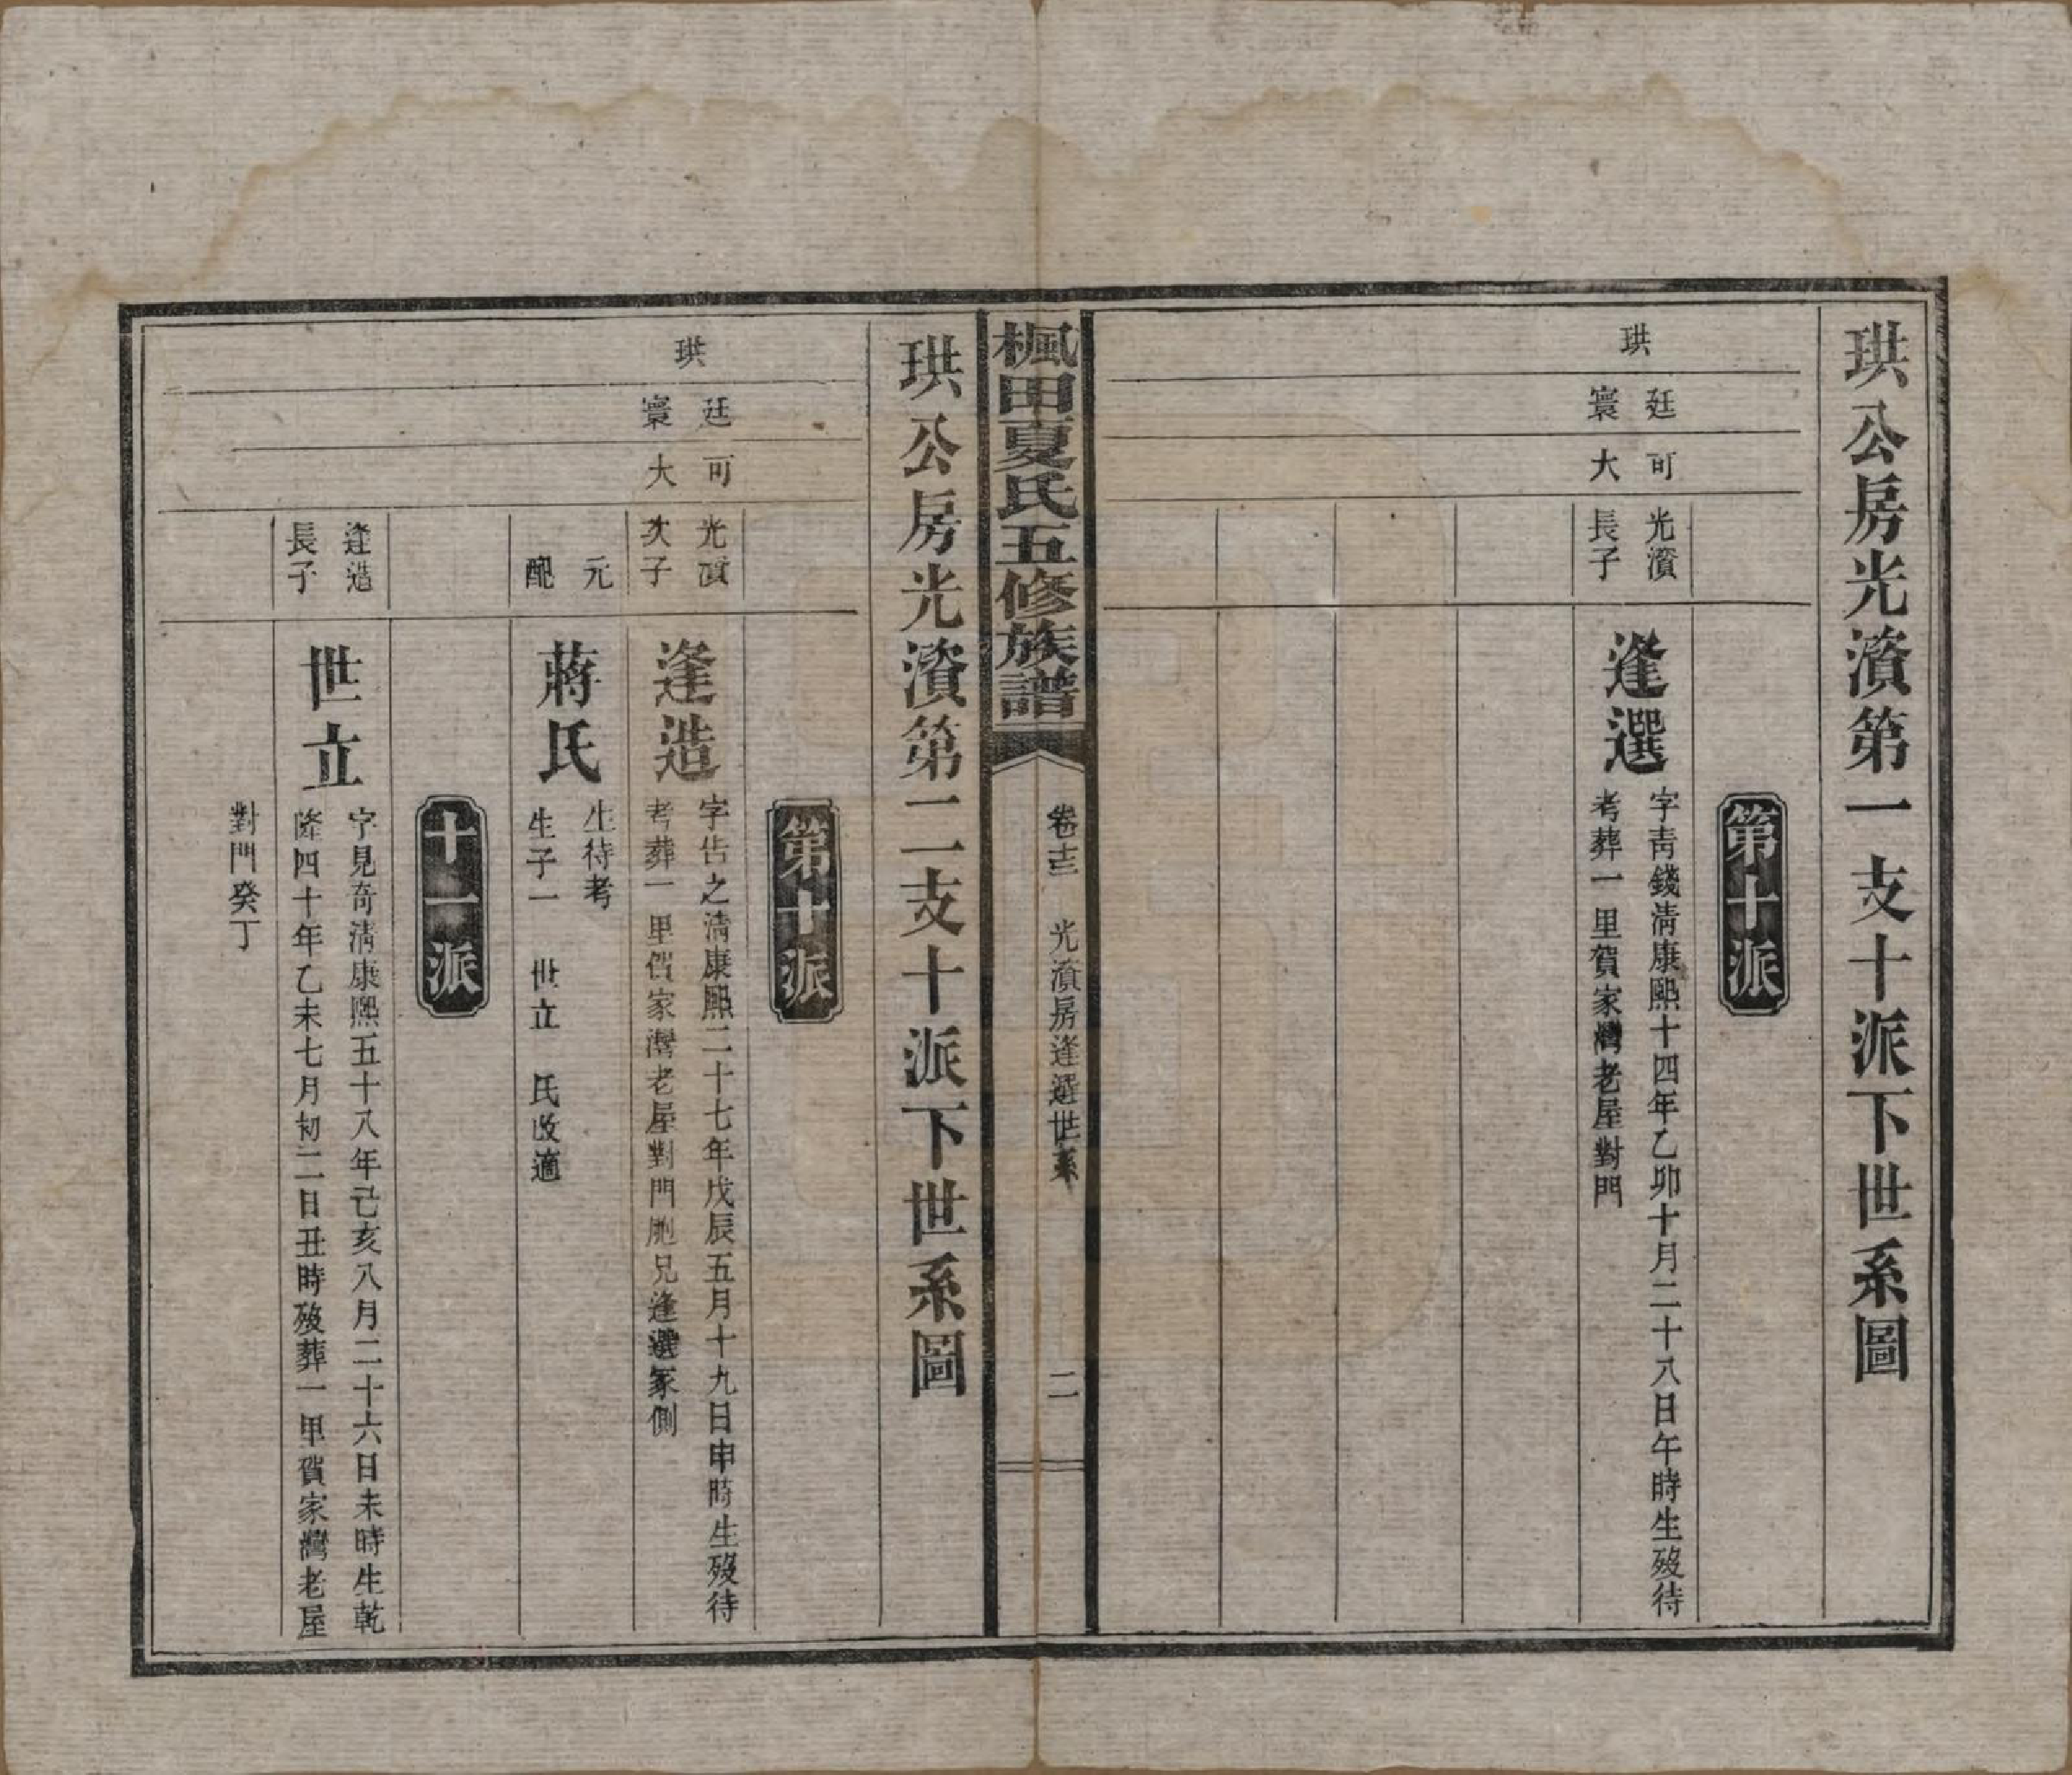 珙公房光濱第一支十派下世系圖
珙
廷寰
可大
光濱長子
第十派
逢選
字靑錢淸康熙十四年乙卯十月二十八日午時生歿待
考葬一里賀家灣老屋對門
楓田夏氏五修族譜
卷十三
光濱房逢選世系
二
珙公房光濱第二支十派下世系圖
珙
廷寰
可大
光濱次子
第十派
逢造
字告之淸康熙二十七年戊辰五月十九日申時生歿待
考葬一里賀家灣老屋對門胞兄逢選冢側
元配
蔣氏
生待考
生子一 世立 氏改適
十一派
逢造長子
世立
字見奇淸康熙五十八年己亥八月二十六日未時生乾
隆四十年乙未七月初二日丑時歿葬一甲賀家灣老屋
對門癸丁